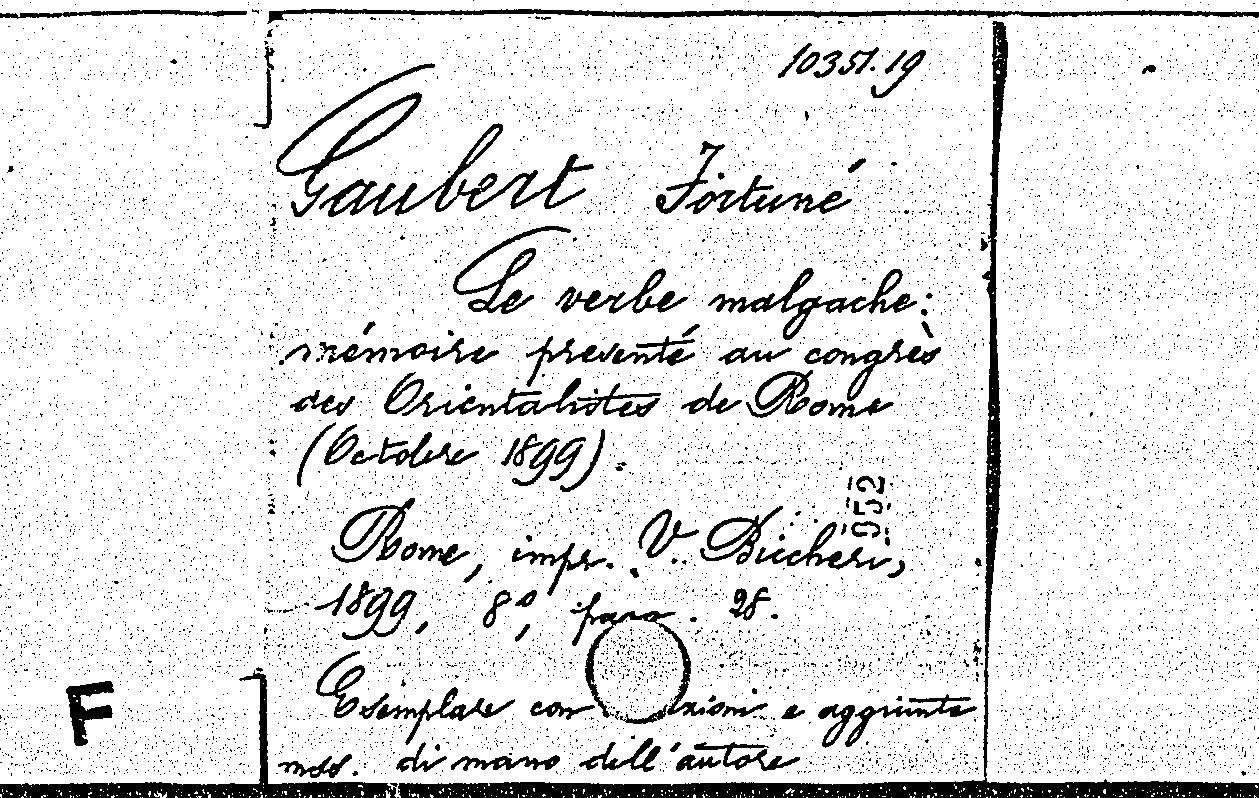 10351.19
Gaubert Fortuné
Le verbe malgache:
mémoire presenté au congrès
des Orientalistes de Rome
(Octobre 1899).
952
Rome, impr. V. Biccheri,
1899, 8°, pagg. 28.
Esemplare con e aggiunte
F
mss. di mano dell'autore